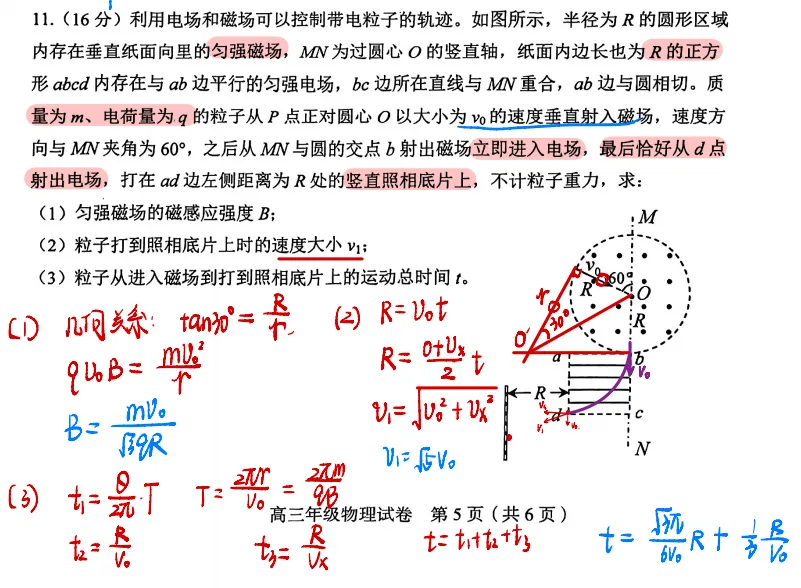 11.(16 分)利用电场和磁场可以控制带电粒子的轨迹。如图所示，半径为 R 的圆形区域
内存在垂直纸面向里的匀强磁场，MN 为过圆心 O 的竖直轴，纸面内边长也为 R 的正方
形 abcd 内存在与 ab 边平行的匀强电场，bc 边所在直线与 MN 重合，ab 边与圆相切。质
量为 m、电荷量为 q 的粒子从 P 点正对圆心 O 以大小为 v₀ 的速度垂直射入磁场，速度方
向与 MN 夹角为 60°，之后从 MN 与圆的交点 b 射出磁场立即进入电场，最后恰好从 d 点
射出电场，打在 ad 边左侧距离为 R 处的竖直照相底片上，不计粒子重力，求：
(1) 匀强磁场的磁感应强度 B；
(2) 粒子打到照相底片上时的速度大小 v₁；
(3) 粒子从进入磁场到打到照相底片上的运动总时间 t。
M
v₀ 60°
R
O
R
r
30°
O'
a
b
v₀
R
d
c
N
(1) 几何关系: tan30° = R/r
qv₀B = mv₀²/r
B = mv₀/√3qR
(2) R = v₀t
R = (0+vₓ)/2 t
v₁ = √(v₀²+vₓ²)
v₁ = √5v₀
(3) t₁ = θ/2π·T T = 2πr/v₀ = 2πm/qB
高三年级物理试卷 第 5 页（共 6 页）
t₂ = R/v₀ t₃ = R/vₓ t = t₁+t₂+t₃ t = √3π/6v₀ R + 1/3 R/v₀